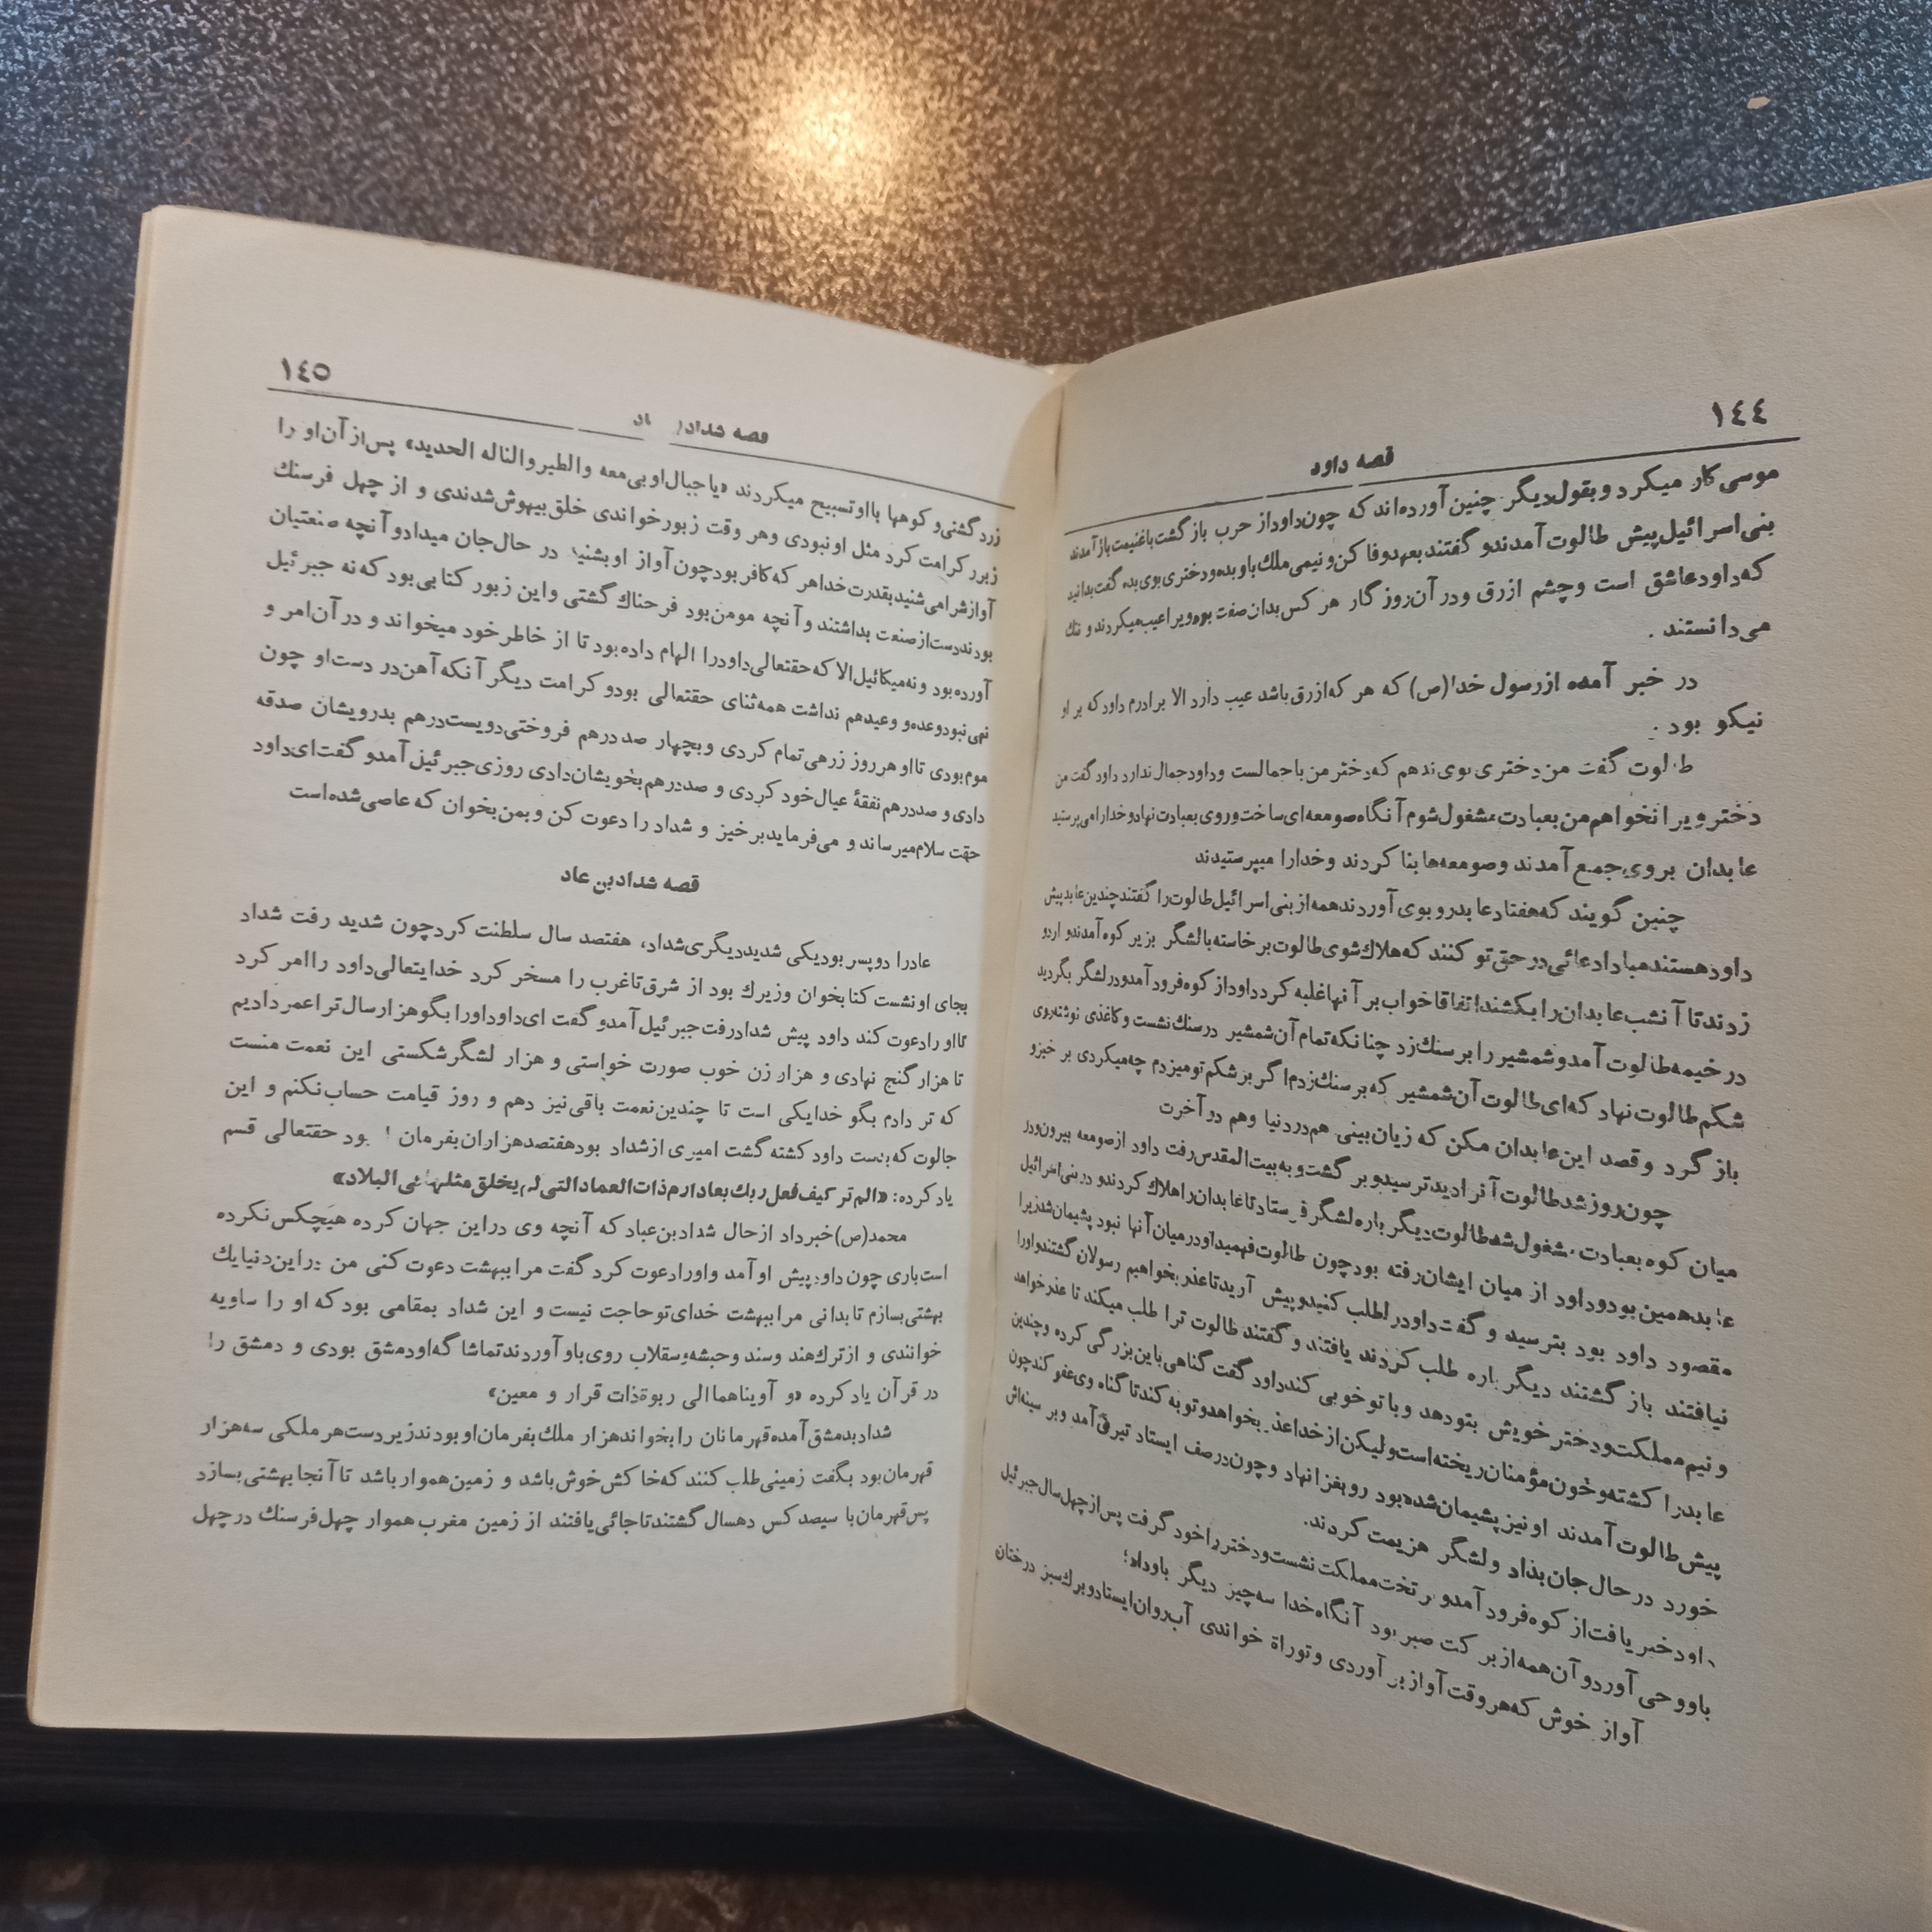 ١٤٤
قصه داود
موسی کار میکرد و بقول دیگر چنین آورده‌اند که چون داود از حرب باز گشت با غنیمت باز آمدند
بنی اسرائیل پیش طالوت آمدند و گفتند بعهد وفا کن و نیمی ملك باو بده و دختری بوی بده گفت بدانید
که داود عاشق است و چشم ازرق و در آن روز گار هر کس بدان صفت بود ویرا عیب میکردند و ننك
می‌دانستند .
در خبر آمده از رسول خدا (ص) که هر که ازرق باشد عیب دارد الا برادرم داود که بر او
نیکو بود .
طالوت گفت من دختری بوی ندهم که دختر من با جمالست و داود جمال ندارد داود گفت من
دختر ویرا نخواهم من بعبادت مشغول شوم آنگاه صومعه‌ای ساخت و روی بعبادت نهاد و خدا را می پرستید
عابدان بروی جمع آمدند و صومعه‌ها بنا کردند و خدا را میپرستیدند
چنین گویند که هفتاد عابد رو بوی آوردند همه از بنی اسرائیل طالوت را گفتند چندین عابد پیش
داود هستند مبادا دعائی در حق تو کنند که هلاك شوی طالوت برخاسته با لشگر بزیر کوه آمدند و اردو
زدند تا آنشب عابدان را بکشند اتفاقا خواب بر آنها غلبه کرد داود از کوه فرود آمد و در لشگر بگردید
در خیمه طالوت آمد و شمشیر را بر سنك زد چنانکه تمام آن شمشیر در سنك نشست و کاغذی نوشته روی
شکم طالوت نهاد که ای طالوت آن شمشیر که بر سنك زدم اگر بر شکم تو میزدم چه میکردی بر خیز و
باز گرد و قصد این عابدان مکن که زیان بینی هم در دنیا و هم در آخرت
چون روز شد طالوت آنرا دید ترسید و بر گشت و به بیت المقدس رفت داود از صومعه بیرون و در
میان کوه بعبادت مشغول شد طالوت دیگر باره لشگر فرستاد تا عابدان را هلاك کردند و در بنی اسرائیل
عابد همین بود و داود از میان ایشان رفته بود چون طالوت فهمید داود در میان آنها نبود پشیمان شد زیرا
مقصود داود بود بترسید و گفت داود را طلب کنید و پیش آرید تا عذر بخواهیم رسولان گشتند او را
نیافتند باز گشتند دیگر باره طلب کردند یافتند و گفتند طالوت ترا طلب میکند تا عذر خواهد
و نیم مملکت و دختر خویش بتو دهد و با تو خوبی کند داود گفت گناهی باین بزرگی کرده و چندین
عابد را کشته و خون مؤمنان ریخته است ولیکن از خدا عذر بخواهد و توبه کند تا گناه وی عفو کند چون
پیش طالوت آمدند او نیز پشیمان شده بود رو بغزا نهاد و چون در صف ایستاد تیر قی آمد و بر سینه‌اش
خورد در حال جان بداد و لشگر هزیمت کردند.
داود خبر یافت از کوه فرود آمد و بر تخت مملکت نشست و دختر را خود گرفت پس از چهل سال جبرئیل
باو وحی آورد و آن همه از برکت صبر بود آنگاه خدا سه چیز دیگر باو داد؛
آواز خوش که هر وقت آواز بر آوردی و توراة خواندی آب روان ایستادو برك سبز درختان
١٤٥
قصه شداد
زرد گشتی و کوهها با او تسبیح میکردند «یا جبال اوبی معه والطیر والناله الحدید» پس از آن او را
زبور کرامت کرد مثل او نبودی و هر وقت زبور خواندی خلق بیهوش شدندی و از چهل فرسنك
آوازش را می شنید بقدرت خدا هر که کافر بود چون آواز او بشنید در حال جان میداد و آنچه صنعتیان
بودند دست از صنعت بداشتند و آنچه مومن بود فرحناك گشتی و این زبور کتابی بود که نه جبرئیل
آورده بود و نه میکائیل الا که حقتعالی داود را الهام داده بود تا از خاطر خود میخواند و در آن امر و
نهی نبود وعده و وعید هم نداشت همه ثنای حقتعالی بود و کرامت دیگر آنکه آهن در دست او چون
موم بودی تا او هر روز زرهی تمام کردی و بچهار صد درهم فروختی دویست درهم بدرویشان صدقه
دادی و صد درهم نفقهٔ عیال خود کردی و صد درهم بخویشان دادی روزی جبرئیل آمد و گفت ای داود
حقت سلام میرساند و می‌فرماید بر خیز و شداد را دعوت کن و بمن بخوان که عاصی شده است
قصه شداد بن عاد
عاد را دو پسر بود یکی شدید دیگری شداد، هفتصد سال سلطنت کرد چون شدید رفت شداد
بجای او نشست کتابخوان وزیرك بود از شرق تا غرب را مسخر کرد خدایتعالی داود را امر کرد
تا او را دعوت کند داود پیش شداد رفت جبرئیل آمد و گفت ای داود او را بگو هزار سال ترا عمر دادیم
تا هزار گنج نهادی و هزار زن خوب صورت خواستی و هزار لشگر شکستی این نعمت منست
که تر دادم بگو خدا یکی است تا چندین نعمت باقی نیز دهم و روز قیامت حساب نکنم و این
جالوت که بدست داود کشته گشت امیری از شداد بود هفتصد هزاران بفرمان بود حقتعالی قسم
یاد کرده: «الم تر کیف فعل ربك بعاد ارم ذات العماد التی لم یخلق مثلها فی البلاد»
محمد (ص) خبر داد از حال شداد بن عباد که آنچه وی در این جهان کرده هیچکس نکرده
است باری چون داود پیش او آمد و او را دعوت کرد گفت مرا ببهشت دعوت کنی من در این دنیا یك
بهشتی بسازم تا بدانی مرا ببهشت خدای تو حاجت نیست و این شداد بمقامی بود که او را ساویه
خوانندی و از ترك هند و سند و حبشه و سقلاب روی باو آوردند تماشا گه او دمشق بودی و دمشق را
در قرآن یاد کرده «و آویناهما الی ربوة ذات قرار و معین»
شداد بدمشق آمده قهرمانان را بخواند هزار ملك بفرمان او بودند زیر دست هر ملکی سه هزار
قهرمان بود بگفت زمینی طلب کنند که خاکش خوش باشد و زمین هموار باشد تا آنجا بهشتی بسازد
پس قهرمان با سیصد کس ده سال گشتند تا جائی یافتند از زمین مغرب هموار چهل فرسنك در چهل